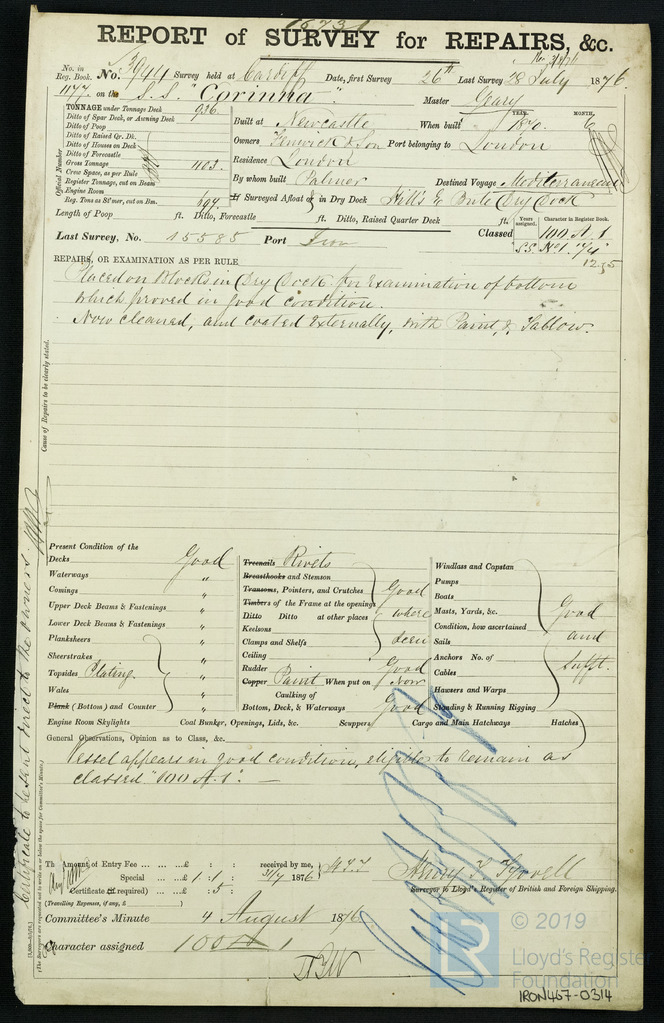 15731
REPORT of SURVEY for REPAIRS, &c.
No. in Reg. Book. No. 3944 Survey held at Cardiff Date, first Survey 26th Last Survey 28 July 1876.
1177 on the S.S. "Corinna" Master Geary
TONNAGE under Tonnage Deck 936
Ditto of Spar Deck, or Awning Deck
Ditto of Poop
Ditto of Raised Qr. Dk.
Ditto of Houses on Deck
Ditto of Forecastle
Gross Tonnage 1103.
Crew Space, as per Rule
Register Tonnage, cut on Beam
Engine Room
Reg. Tons as St'mer, cut on Bm. 697
Official Number
Built at Newcastle When built YEAR. 1870. MONTH. 6
Owners Fenwick & Son Port belonging to London
Residence London
By whom built Palmer Destined Voyage Mediterranean
If Surveyed Afloat or in Dry Dock Hill's & Bute Dry Dock
Length of Poop ft. Ditto, Forecastle ft. Ditto, Raised Quarter Deck ft.
Years assigned. Character in Register Book.
Last Survey, No. 15585 Port Iron Classed 100 A.1
S.S. No1.
12.75
REPAIRS, OR EXAMINATION AS PER RULE
Placed on Blocks in Dry Dock for Examination of bottom
which proved in good condition.
Now cleaned, and coated Externally, with Paint, & Tallow.
Cause of Repairs to be clearly stated.
Certificate to be sent direct to the owners
(The Surveyors are requested not to write on or below the space for Committee's Minute.)
Present Condition of the
Decks Good
Waterways "
Comings "
Upper Deck Beams & Fastenings "
Lower Deck Beams & Fastenings "
Planksheers "
Sheerstrakes "
Topsides Plating. "
Wales "
Plank (Bottom) and Counter "
Treenails Rivets
Breasthooks and Stemson
Transoms, Pointers, and Crutches Good
Timbers of the Frame at the openings
Ditto Ditto at other places where
Keelsons
Clamps and Shelfs seen
Ceiling
Rudder Good
Copper Paint When put on Now
Caulking of
Bottom, Deck, & Waterways Good
Windlass and Capstan
Pumps
Boats
Masts, Yards, &c. Good
Condition, how ascertained
Sails and
Anchors No. of
Cables Sufft.
Hawsers and Warps
Standing & Running Rigging
Engine Room Skylights Coal Bunker, Openings, Lids, &c. Scuppers Cargo and Main Hatchways Hatches
General Observations, Opinion as to Class, &c.
Vessel appears in good condition, eligible to remain as
classed "100 A.1". —
The Amount of Entry Fee ... ... ... £ : : received by me,
Special ... ... £ 1 : 1 : 31/7 1876
Certificate (if required) : 5 :
(Travelling Expenses, if any, £ )
Henry T. Tyrrell
Surveyor to Lloyd's Register of British and Foreign Shipping.
Committee's Minute 4 August 1876.
Character assigned 100 A 1
© 2019
LR
Lloyd's Register
Foundation
IRON467-0314